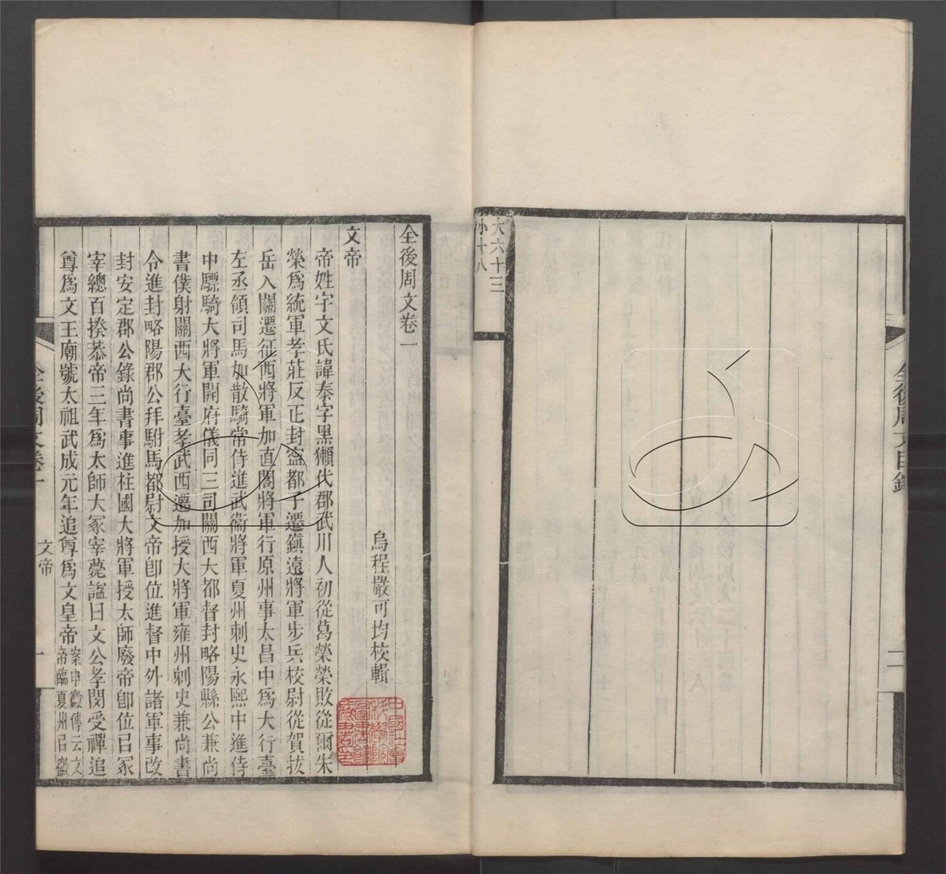 大六十三
小十八
全後周文目錄
二
全後周文卷一
烏程嚴可均校輯
文帝
帝姓宇文氏諱泰字黑獺代郡武川人初從葛榮榮敗從爾朱
榮爲統軍孝莊反正封寧都子遷鎮遠將軍步兵校尉從賀拔
岳入關遷征西將軍加直閣將軍行原州事太昌中爲大行臺
左丞領司馬加散騎常侍進武衞將軍夏州刺史永熙中進侍
中驃騎大將軍開府儀同三司關西大都督封略陽縣公兼尚
書僕射關西大行臺孝武西遷加授大將軍雍州刺史兼尚書
令進封略陽郡公拜駙馬都尉文帝卽位進督中外諸軍事改
封安定郡公錄尚書事進柱國大將軍授太師廢帝卽位㠯冢
宰總百揆恭帝三年爲太師大冢宰薨謚曰文公孝閔受禪追
尊爲文王廟號太祖武成元年追尊爲文皇帝案申徽傳云文
帝臨夏州㠯徽
全後周文卷一
文帝
一